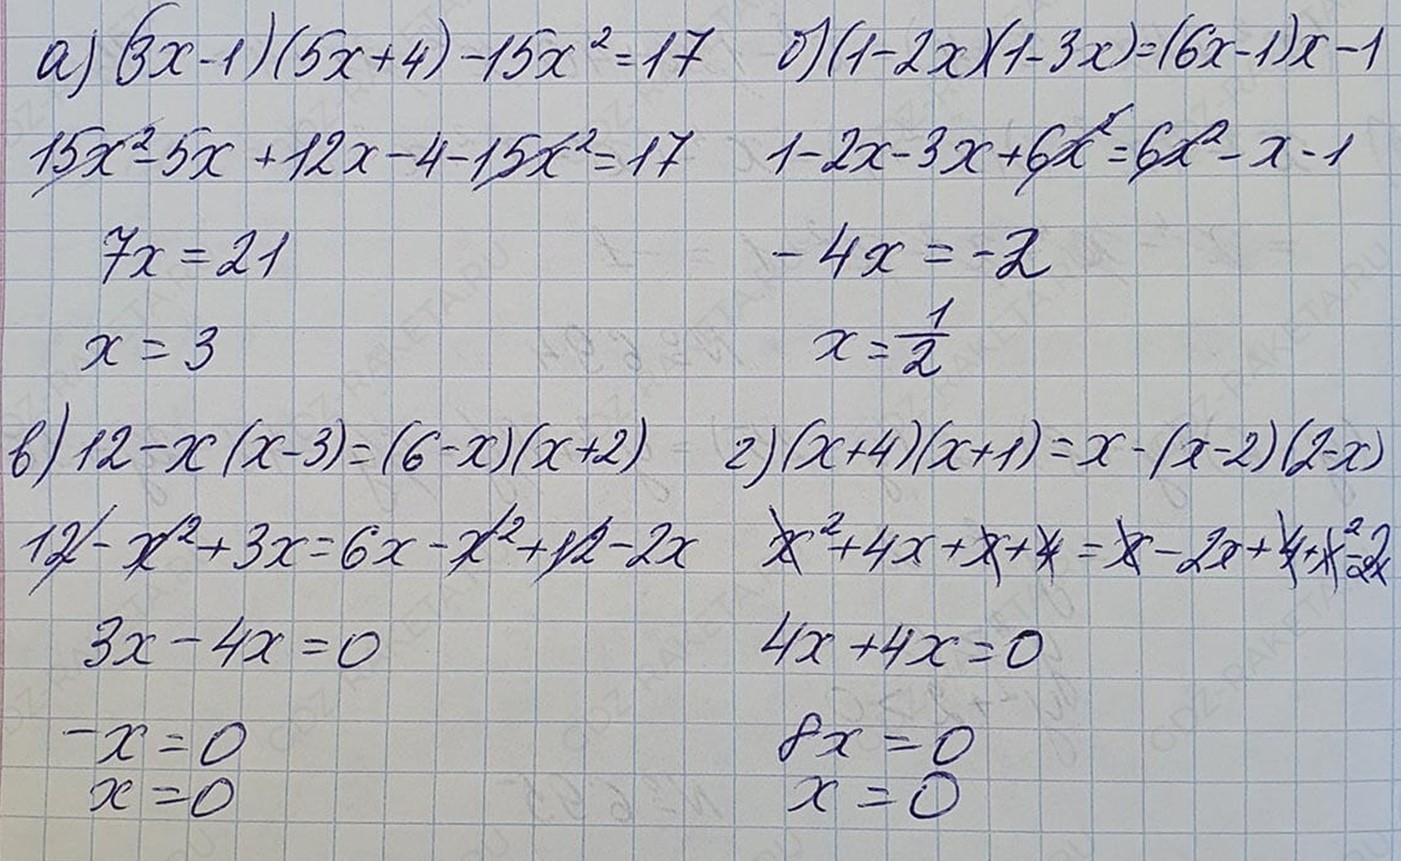 а) (3x-1)(5x+4)-15x²=17
15x²-5x+12x-4-15x²=17
7x=21
x=3
б) (1-2x)(1-3x)=(6x-1)x-1
1-2x-3x+6x²=6x²-x-1
-4x=-2
x=1/2
в) 12-x(x-3)=(6-x)(x+2)
12-x²+3x=6x-x²+12-2x
3x-4x=0
-x=0
x=0
г) (x+4)(x+1)=x-(x-2)(2-x)
x²+4x+x+4=x-2x+4+x²-2x
4x+4x=0
8x=0
x=0